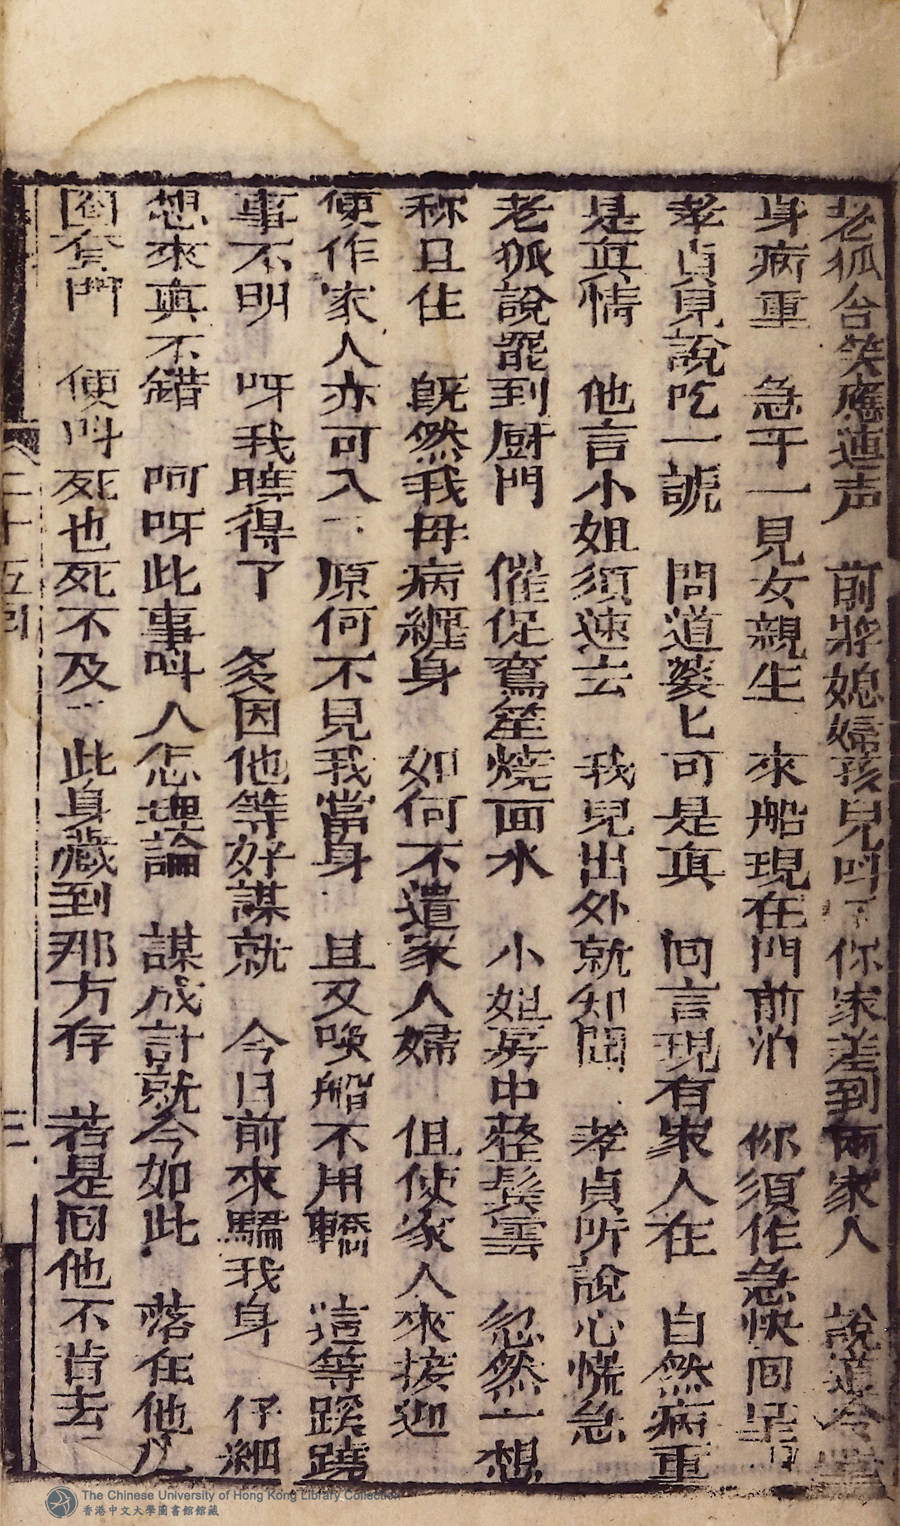 老狐含笑應連声　前將媳婦孩兒呌　你家差到兩家人　說道令堂
身病重　急于一見女親生　來船現在門前泊　你須作急快囘呈
孝貞見說吃一號　問道婆匕可是真　囘言現有家人在　自然病重
是真情　他言小姐須速去　我兒出外就知聞　孝貞听說心慌急
老狐說罷到厨門　催促鴛笙燒面水　小姐房中整鬂雲　忽然一想
称且住　旣然我母病纒身　如何不遣家人婦　但使家人來接迎
便作家人亦可入　原何不見我當身　且又喚船不用轎　這等蹊蹺
事不明　呀我曉得了　炙因他等好謀就　今日前來騙我身　仔細
想來真不錯　阿呀此事呌人怎理論　謀成計就今如此　落在他
圈套門　便呌死也死不及　此身藏到那方存　若是囘他不肯去
二十五囘
三
The Chinese University of Hong Kong Library Collection
香港中文大學圖書館館藏